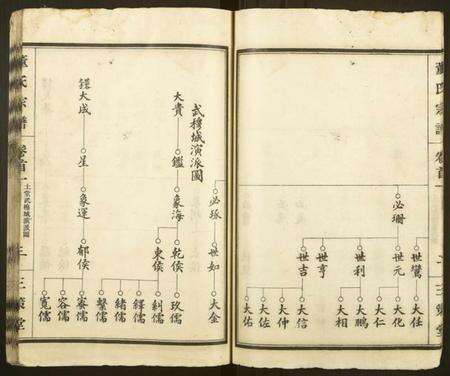 董氏宗譜 卷首一
二 三策堂
必珊
世鸞 世元 世利 世亨 世吉
大任 大化 大仁 大鵬 大相 大信 大仲 大佐 大佑
必琢
世如
大金
武穆城演派圖
大貴
鑑
象海
乾侯 東侯
玖儒 釗儒 鐸儒 緒儒
鐸大成
星
象運
郁侯
馨儒 寀儒 容儒 寬儒
董氏宗譜 卷首一
土堂武穆城演派圖
三 三策堂